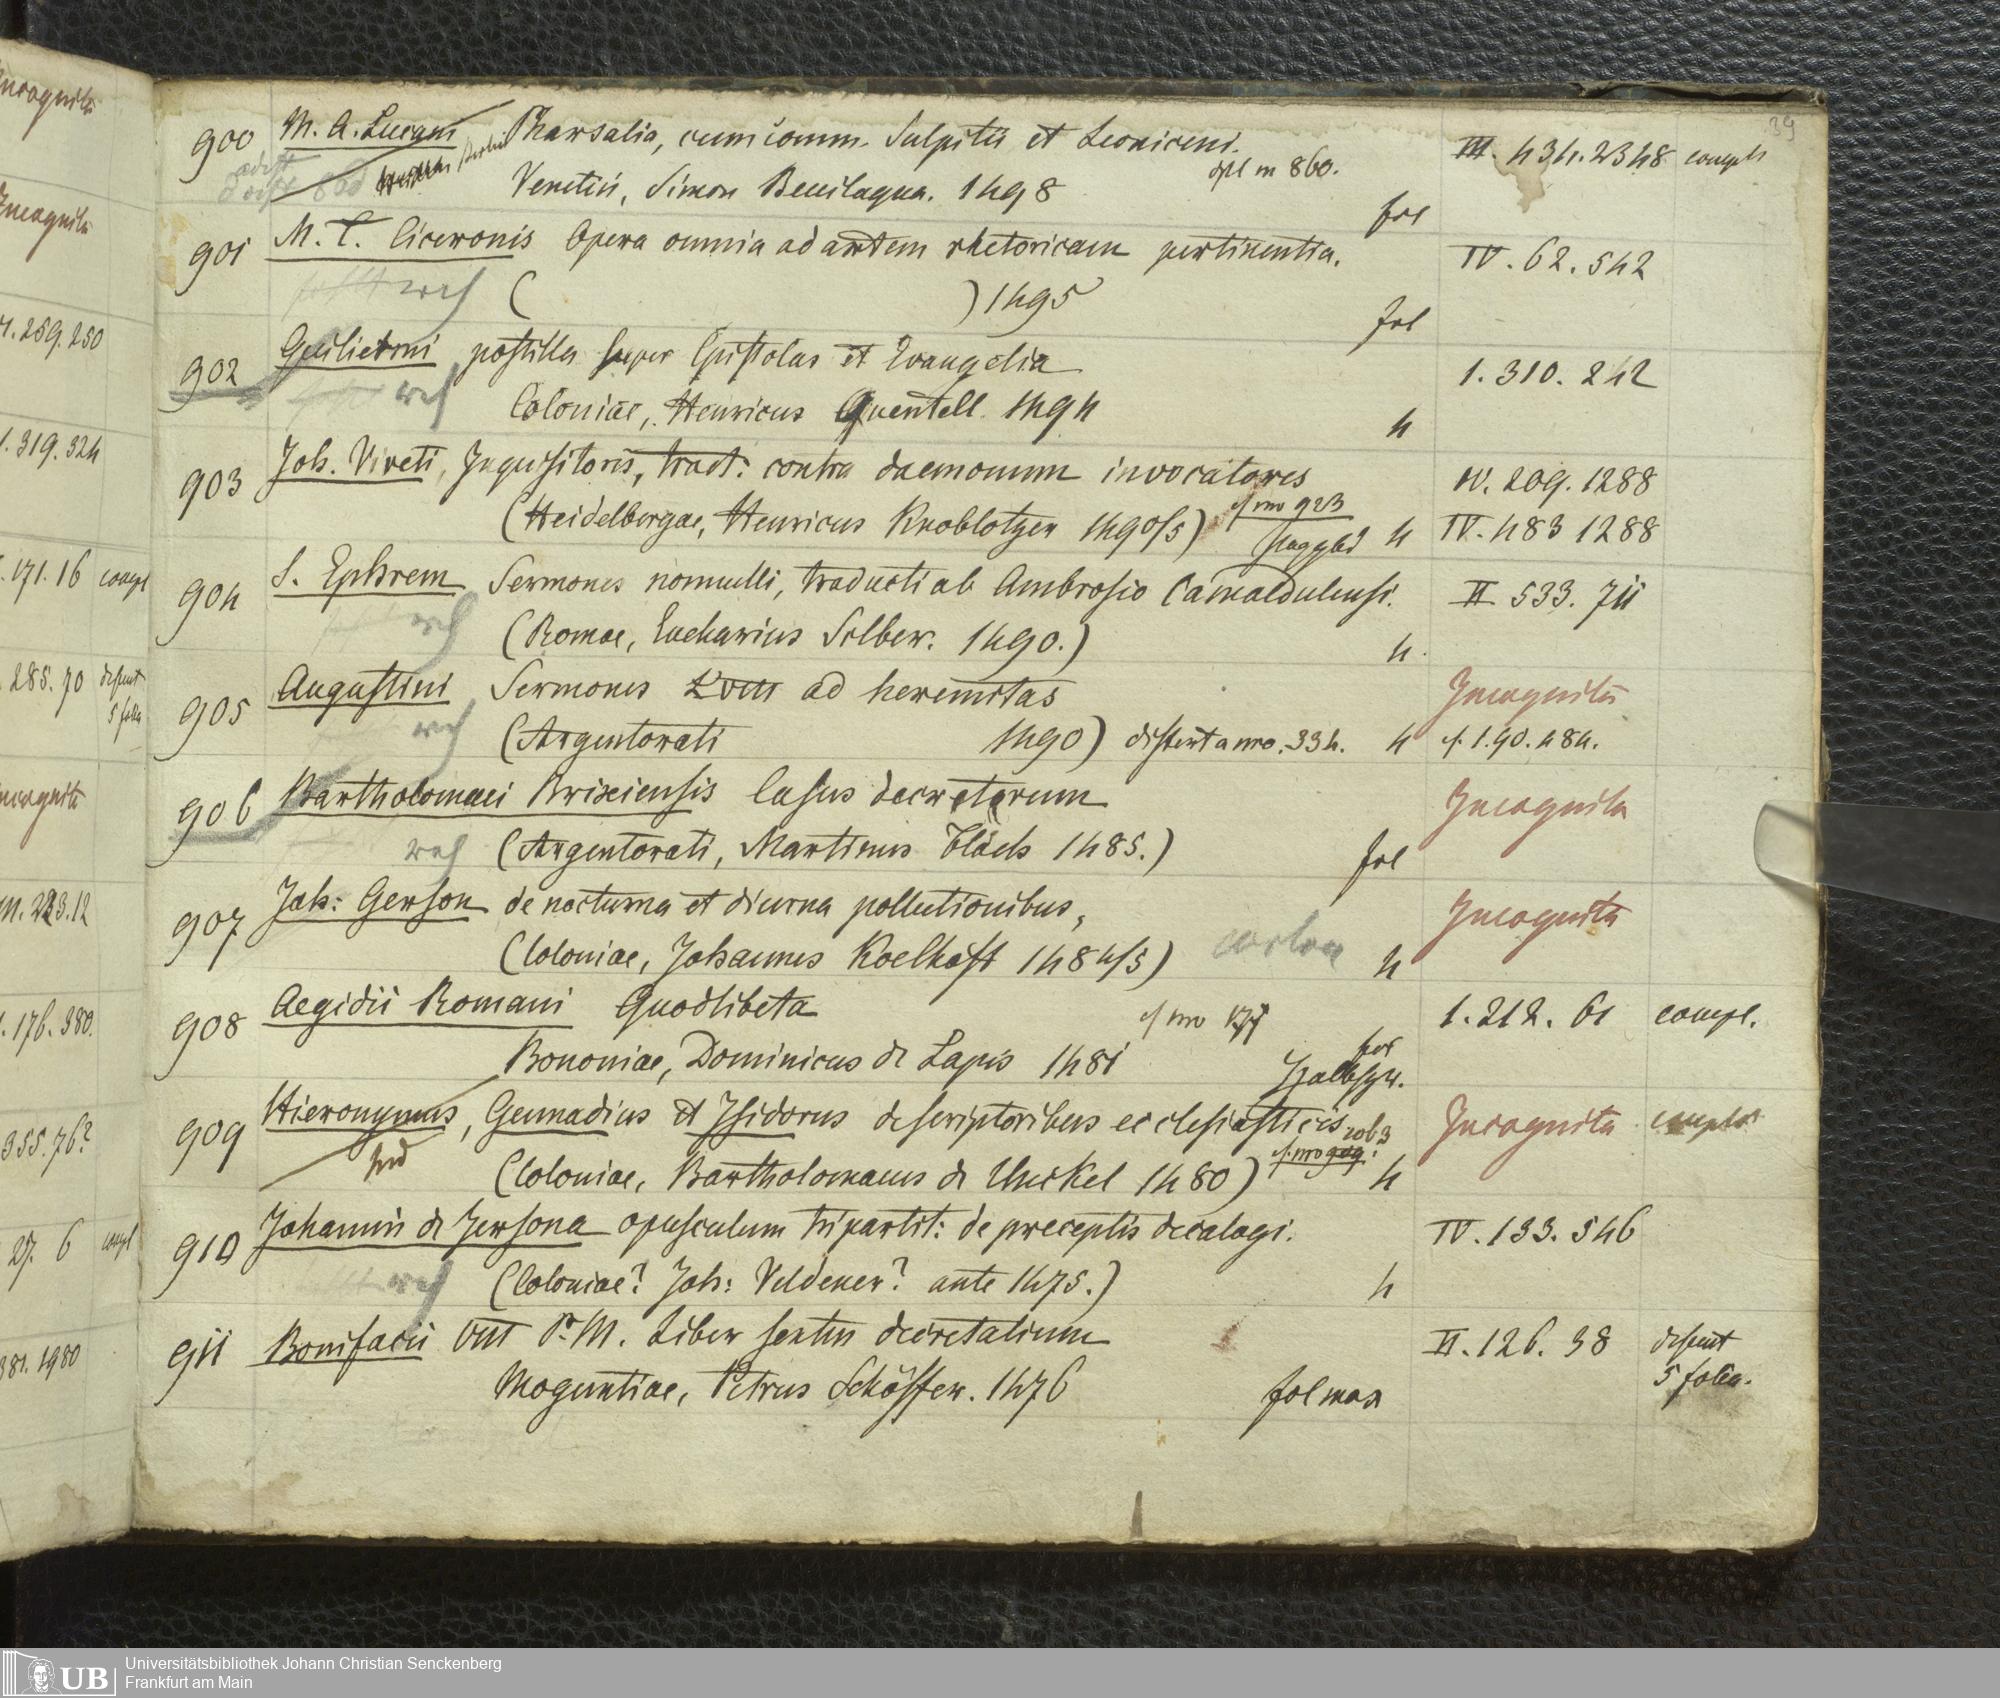 39
900 M. A. Lucani Pharsalia, cum comm. Sulpitii et Leoniceni.
Venetiis, Simon Bevilaqua. 1498 dpl m 860. fol
III. 434. 2348 compl
901 M. T. Ciceronis Opera omnia ad artem rhetoricam pertinentia.
( ) 1495 fol
IV. 62. 542
902 Guilielmi postilla super Epistolas et Evangelia
Coloniae, Henricus Quentell. 1494 4
1. 310. 242
903 Joh. Viveti, Inquisitoris, tract: contra daemonum invocatores
(Heidelbergae, Henricus Knoblotzer 1490/5) cf nro 923 4
IV. 209. 1288
IV. 483 1288
904 S. Ephrem Sermones nonnulli, traducti ab Ambrosio Camaldulensi.
(Romae, Eucharius Silber. 1490.) 4.
II 533. 711
905 Augustini Sermones ad heremitas
(Argentorati 1490) differt a nro. 334. 4
Incognita
cf. 1. 90. 484.
906 Bartholomaei Brixiensis Casus decretorum
(Argentorati, Martinus Flach 1485.) fol
Incognita
907 Joh: Gerson de nocturna et diurna pollutionibus,
(Coloniae, Johannes Koelhoff 1484/5) 4
Incognita
908 Aegidii Romani Quodlibeta cf nro 177
Bononiae, Dominicus de Lapis 1481 fol
1. 212. 61 compl.
909 Hieronymus, Gennadius et Isidorus de scriptoribus ecclesiasticis
(Coloniae, Bartholomaeus de Unckel 1480) 4
Incognita complet
910 Johannis de Jersona opusculum tripartit: de preceptis decalogi.
(Coloniae? Joh: Veldener? ante 1475.) 4
IV. 133. 546
911 Bonifacii VIII P. M. Liber sextus decretalium
Moguntiae, Petrus Schöffer. 1476 fol max
II. 126. 38 desunt
5 folia.
Incognita
Incognita
259. 250
319. 324
171. 16 compl
285. 70 desunt
5 folia
Incognita
176. 380.
355. 76?
27. 6 compl
381. 1980
UB
Universitätsbibliothek Johann Christian Senckenberg
Frankfurt am Main